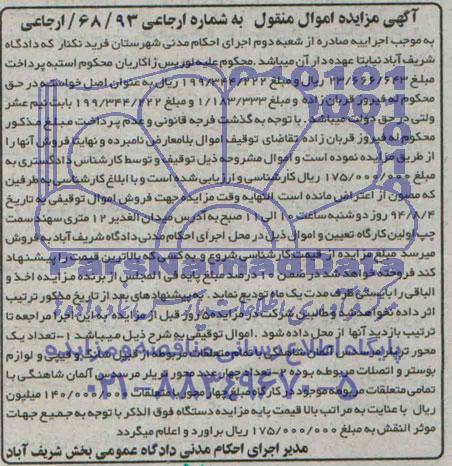 آگهی مزایده اموال منقول به شماره ارجاعی ۹۳ / ۶۸ / ارجاعی
به موجب اجراییه صادره از شعبه دوم اجرای احکام مدنی شهرستان فرید نکنار که دادگاه
شریف آباد نیابتا عهده دار آن میباشد. محکوم علیه لوریس زاکاریان محکوم استبه پرداخت
مبلغ ۲۳/۶۶۶/۶۴۳ ریال و مبلغ ۱۹۹/۳۴۴/۲۲۲ ریال به عنوان اصل خواسته در حق
محکوم له فیروز قربان زاده و مبلغ ۱/۱۸۳/۳۳۳ و مبلغ ۱۹۹/۳۴۴/۲۲۲ بابت نیم عشر
ولتی در حق دولت میباشد. با توجه به گذشت فرجه قانونی و عدم پرداخت مبلغ مذکور
محکوم له فیروز قربان زاده تقاضای توقیف اموال بلامعارض نامبرده و نهایتا فروش آنها را
از طریق مزایده نموده است و اموال مشروحه ذیل توقیف و توسط کارشناس دادگستری به
مبلغ ۱۷۵/۰۰۰/۰۰۰ ریال کارشناسی و ارزیابی شده است و با ابلاغ کارشناسی به طرفین
که مصون از اعتراض مانده است. النهایه وقت مزایده جهت فروش اموال توقیفی به تاریخ
۹۴/۸/۴ روز دوشنبه ساعت ۱۰ الی ۱۱ صبح به آدرس میدان الغدیر ۱۲ متری سهند سمت
چپ اولین کارگاه تعیین و اموال ذیل در محل اجرای احکام مدنی دادگاه شریف آباد به فروش
میرسد مبلغ مزایده از قیمت کارشناسی شروع و به کسی که بالاترین قیمت را پیشنهاد
کند فروخته خواهد شد. ضمنا ۱۰ درصد مبلغ پایه فی المجلس از برنده مزایده اخذ و
الباقی را بایستی ظرف مدت یک ماه تودیع نماید. به پیشنهادهای بعد از تاریخ مذکور ترتیب
اثر داده نخواهد شد و طالبین شرکت در مزایده ۵ روز قبل از مزایده به این اجرا مراجعه تا
ترتیب بازدید آنها از محل داده شود. اموال توقیفی به شرح ذیل میباشد ۱-تعداد یک
محور تریلر مرسدس آلمان شاهنگی با تمامی متعلقات مربوطه از قبیل فنر و لوازم
بوستر و اتصلات مربوطه بوده ۲-تعداد چهار عدد محور تریلر مرسدس آلمان شاهنگی با
تمامی متعلقات مربوطه موجود در کارگاه مبلغ چهار محور با متعلقات ۱۴۰/۰۰۰/۰۰۰ میلیون
ریال با عنایت به مراتب بالا قیمت پایه مزایده دستگاه فوق الذکر با توجه به جمیع جهات
موثر النقش به مبلغ ۱۷۵/۰۰۰/۰۰۰ ریال براورد و اعلام میگردد
مدیر اجرای احکام مدنی دادگاه عمومی بخش شریف آباد
ParsNamadData
پایگاه اطلاع رسانی مناقصه و مزایده
۰۲۱-۸۸۳۴۹۶۷۰-۵